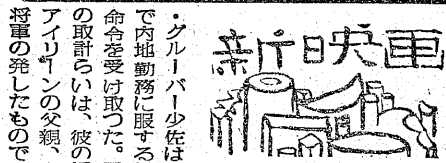 新作映画
・グルーバー少佐は
で内地勤務に服する
命令を受け取つた。
の取計らいは、彼の
アイリーンの父親、
将軍の発したもので